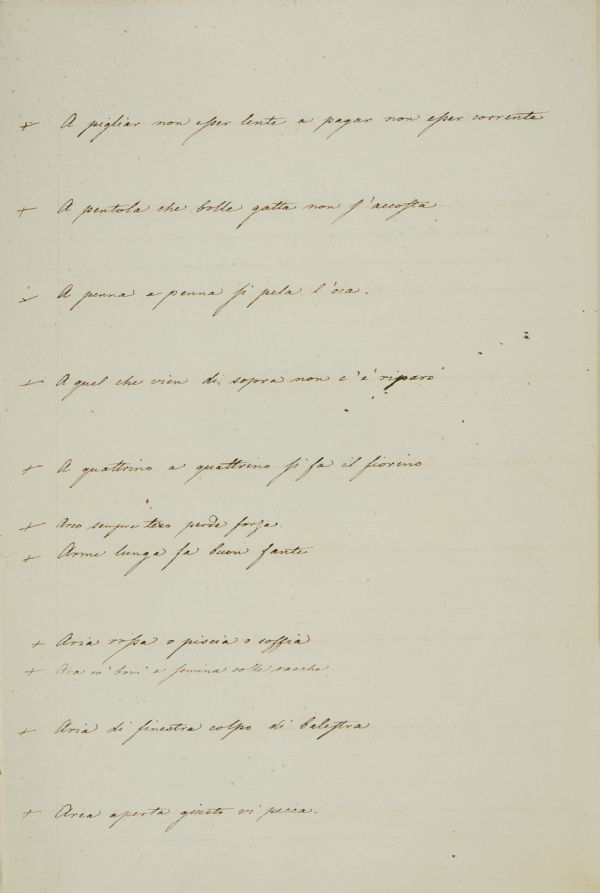 + A pigliar non esser lente a pagar non esser corrente
+ A pentola che bolle gatta non s'accosta
+ A penna a penna si pela l'oca.
+ A quel che vien di sopra non c'è riparo
+ A quattrino a quattrino si fa il fiorino
+ Arco sempre teso perde forza.
+ Arme lunga fa buon fante
+ Aria rossa o piscia o soffia
+ Ara co' bovi e semina colle vacche
+ Aria di finestra colpo di balestra
+ Arca aperta giusto vi pecca.